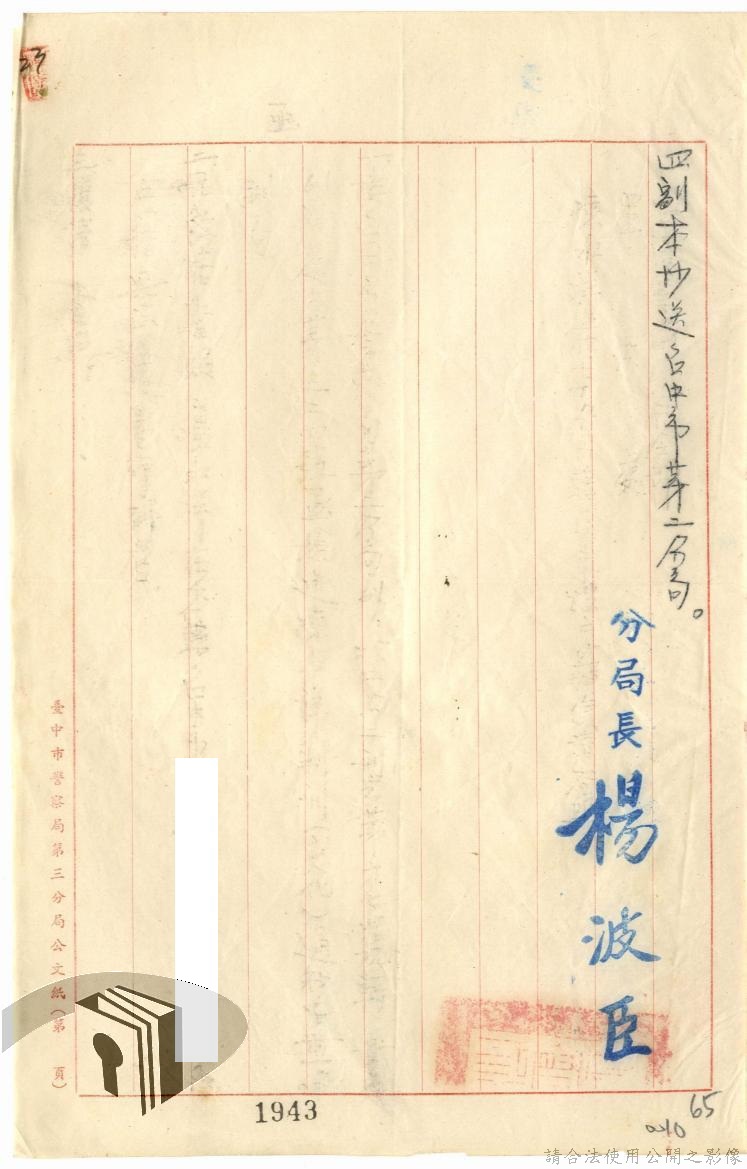 四副本抄送台中市第二分局。
分局長 楊波臣
臺中市警察局第三分局公文紙(第 頁)
1943
65
請合法使用公開之影像